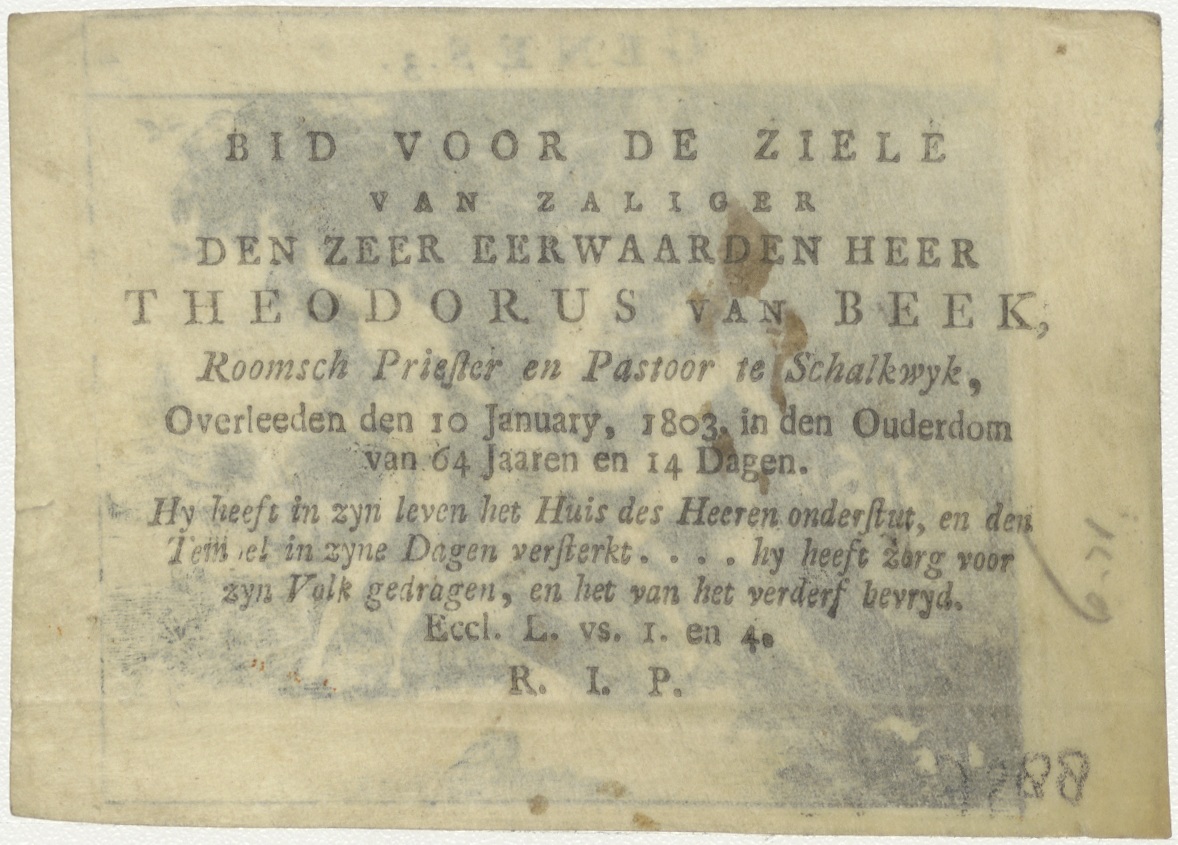 BID VOOR DE ZIELE
VAN ZALIGER
DEN ZEER EERWAARDEN HEER
THEODORUS VAN BEEK,
Roomsch Priester en Pastoor te Schalkwyk,
Overleeden den 10 January, 1803. in den Ouderdom
van 64 Jaaren en 14 Dagen.
Hy heeft in zyn leven het Huis des Heeren onderstut, en den
Tempel in zyne Dagen versterkt. . . . hy heeft zorg voor
zyn Volk gedragen, en het van het verderf bevryd.
Eccl. L. vs. 1. en 4.
R. I. P.